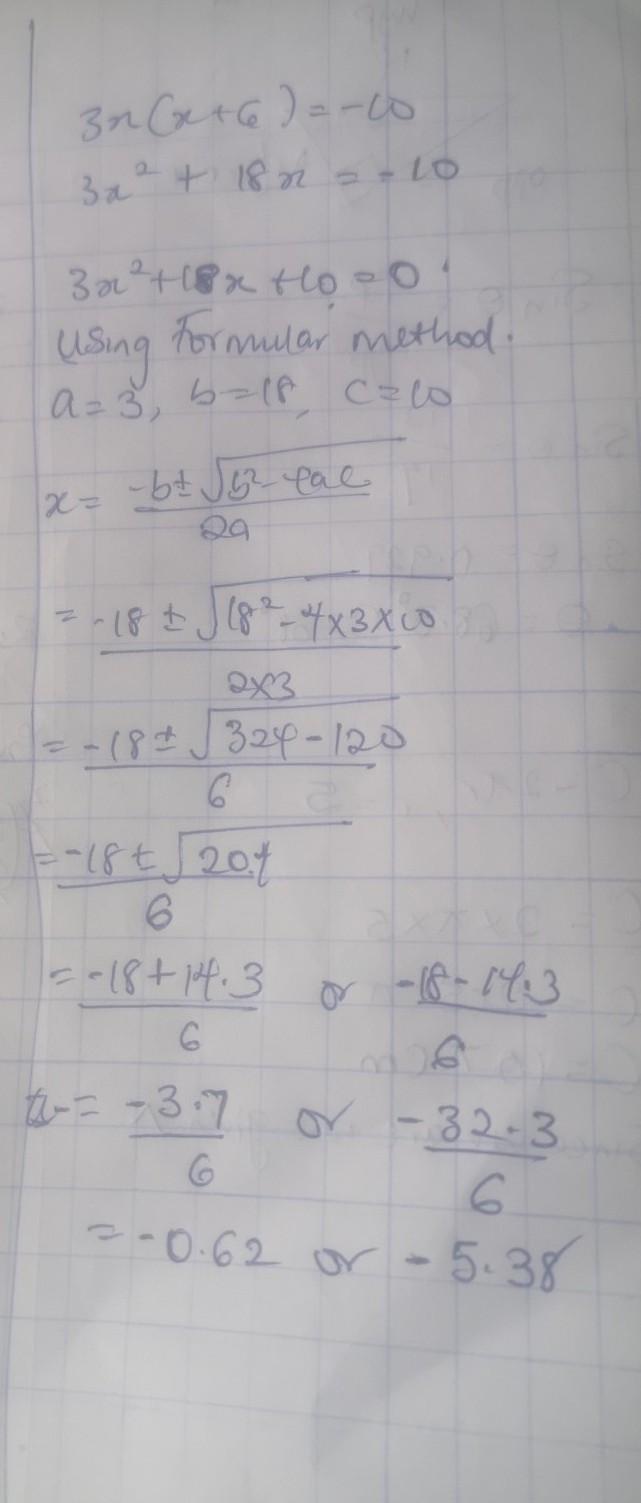 3x(x+6) = -10
3x² + 18x = -10
3x²+18x+10=0
Using Formular method.
a=3, b=18, c=10
x = -b±√b²-4ac
2a
= -18 ± √18²-4×3×10
2×3
= -18 ± √324-120
6
= -18 ± √204
6
= -18+14.3 or -18-14.3
6 6
= -3.7 or -32.3
6 6
= -0.62 or -5.38